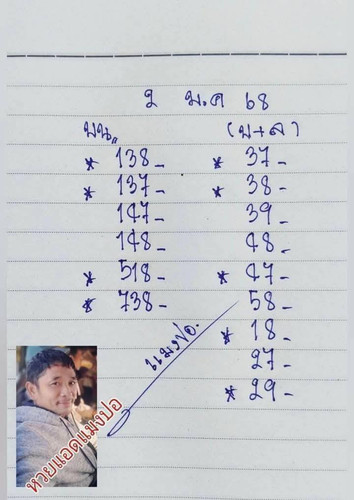 2 ม.ค 68
บน (บ+ล)
* 138- * 37-
* 137- * 38-
147- 39-
148- 48-
* 518- * 47-
* 738- 58-
* 18-
27-
* 29-
แมงปอ.
หวยแอดแมงปอ